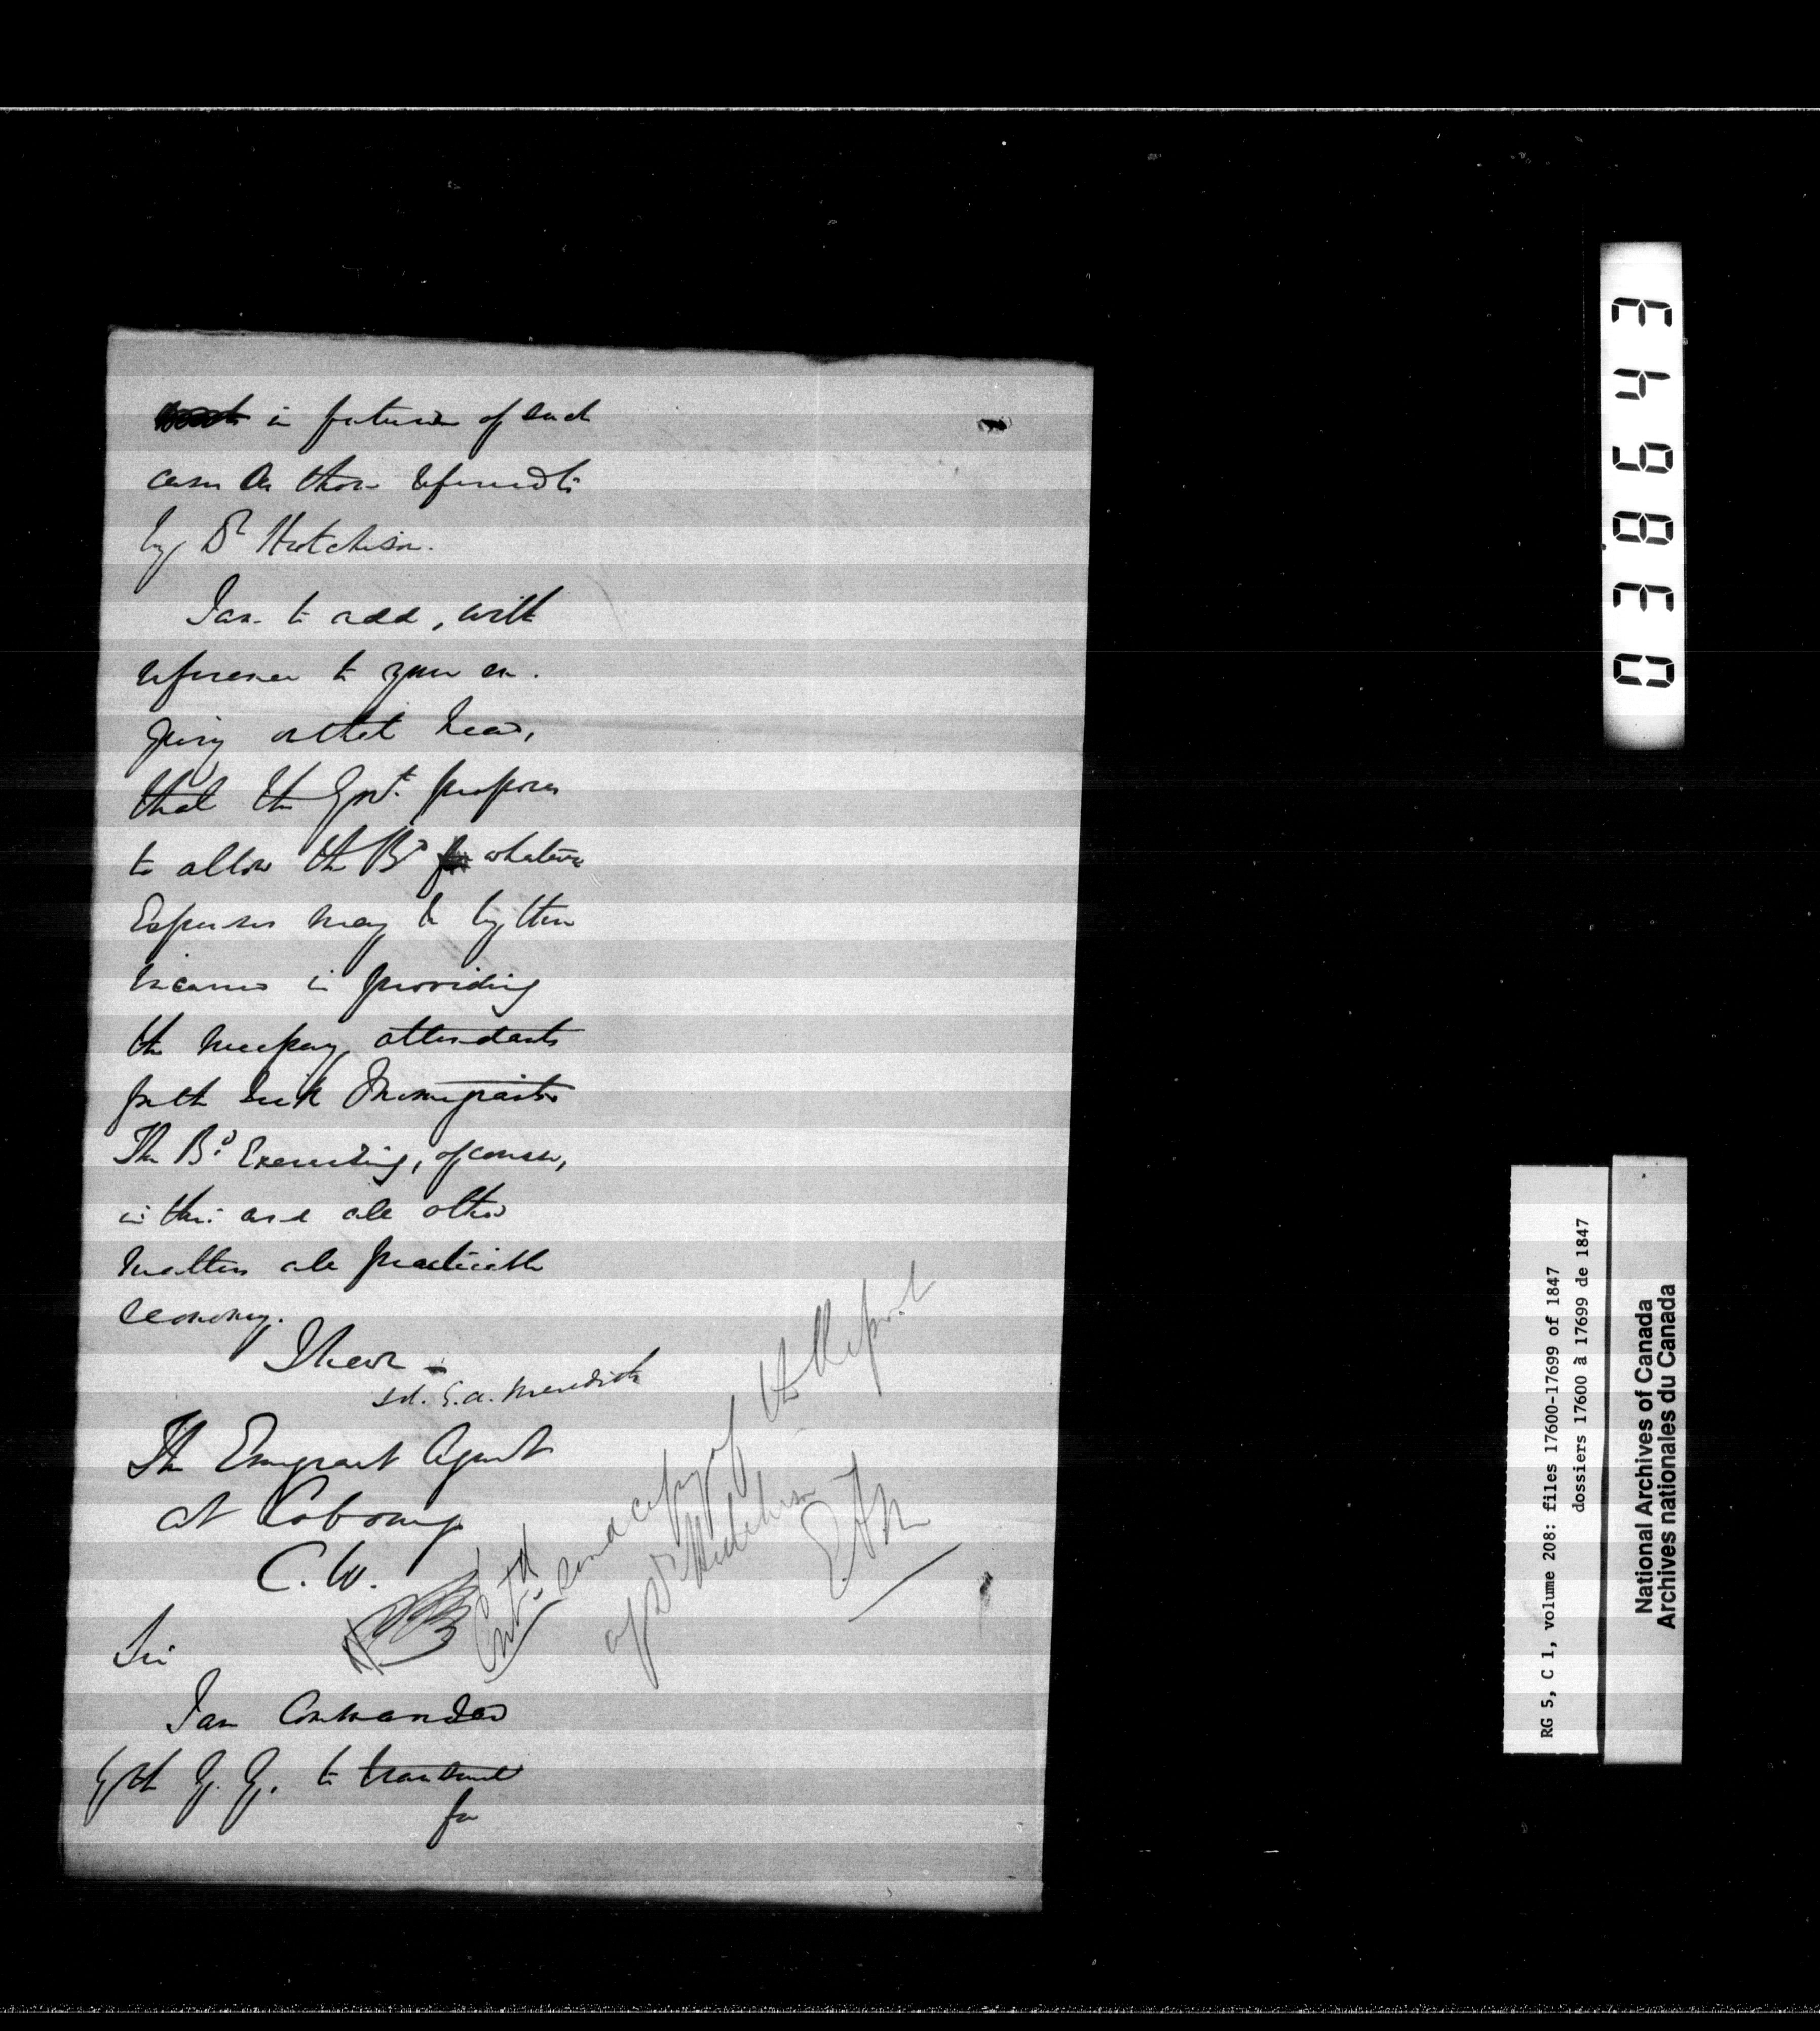 in future of such
cases as those referred to
by Dr Hutchison.
I am to add, with
reference to your en-
quiry on that head,
that the Govt. proposes
to allow the Bd whatever
Expenses may be by them
incurred in providing
the necessary attendants
for the sick Immigrants
The Bd Exercising, of course,
in this and all other
matters all practicable
economy.
I have -
sd. E. A. Meredith
The Emigrant Agent
at Cobourg
C. W.
Sir
I am Commanded
by the G. G. to transmit
for
send a copy of the Report
of Dr Hutchison
E.A.M
038643
RG 5, C 1, volume 208: files 17600-17699 of 1847
dossiers 17600 à 17699 de 1847
National Archives of Canada
Archives nationales du Canada